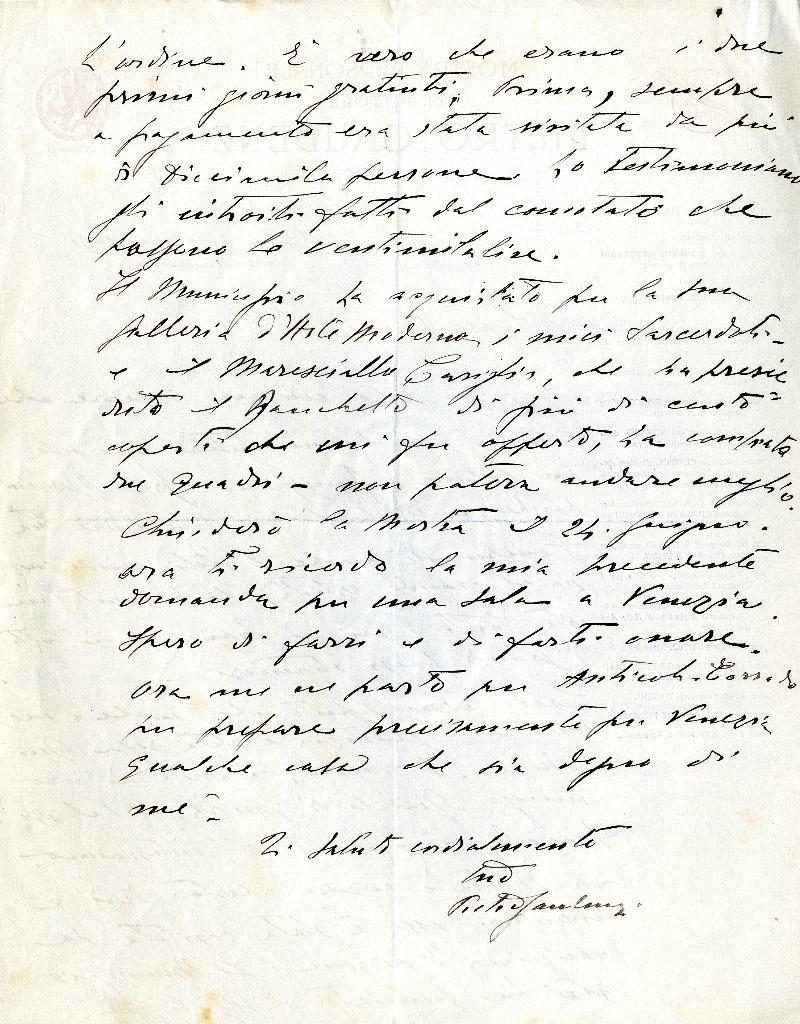 L'ordine. È vero che erano i due
primi giorni gratuiti. Prima, sempre
a pagamento era stata visitata da più
di diecimila persone. Lo testimoniano
gli introiti fatti dal comitato che
passano le ventimilalire.
Il Municipio ha acquistato per la sua
Galleria d'Arte Moderna i miei Sacerdoti -
e il Maresciallo Caviglia, che ha presie
duto il Banchetto di più di cento=
coperti che mi fu offerto, ha comprato
due quadri - non poteva andare meglio.
Chiuderò la Mostra il 24. Giugno.
ora ti ricordo la mia precedente
domanda per una sala a Venezia.
Spero di farvi e di farti onore.
ora me ne parto per Anticoli-Corrado
per preparare precisamente per Venezia
qualche cosa che sia degno di
me -
Ti saluto cordialmente
tuo
Pietro Gaudenzi